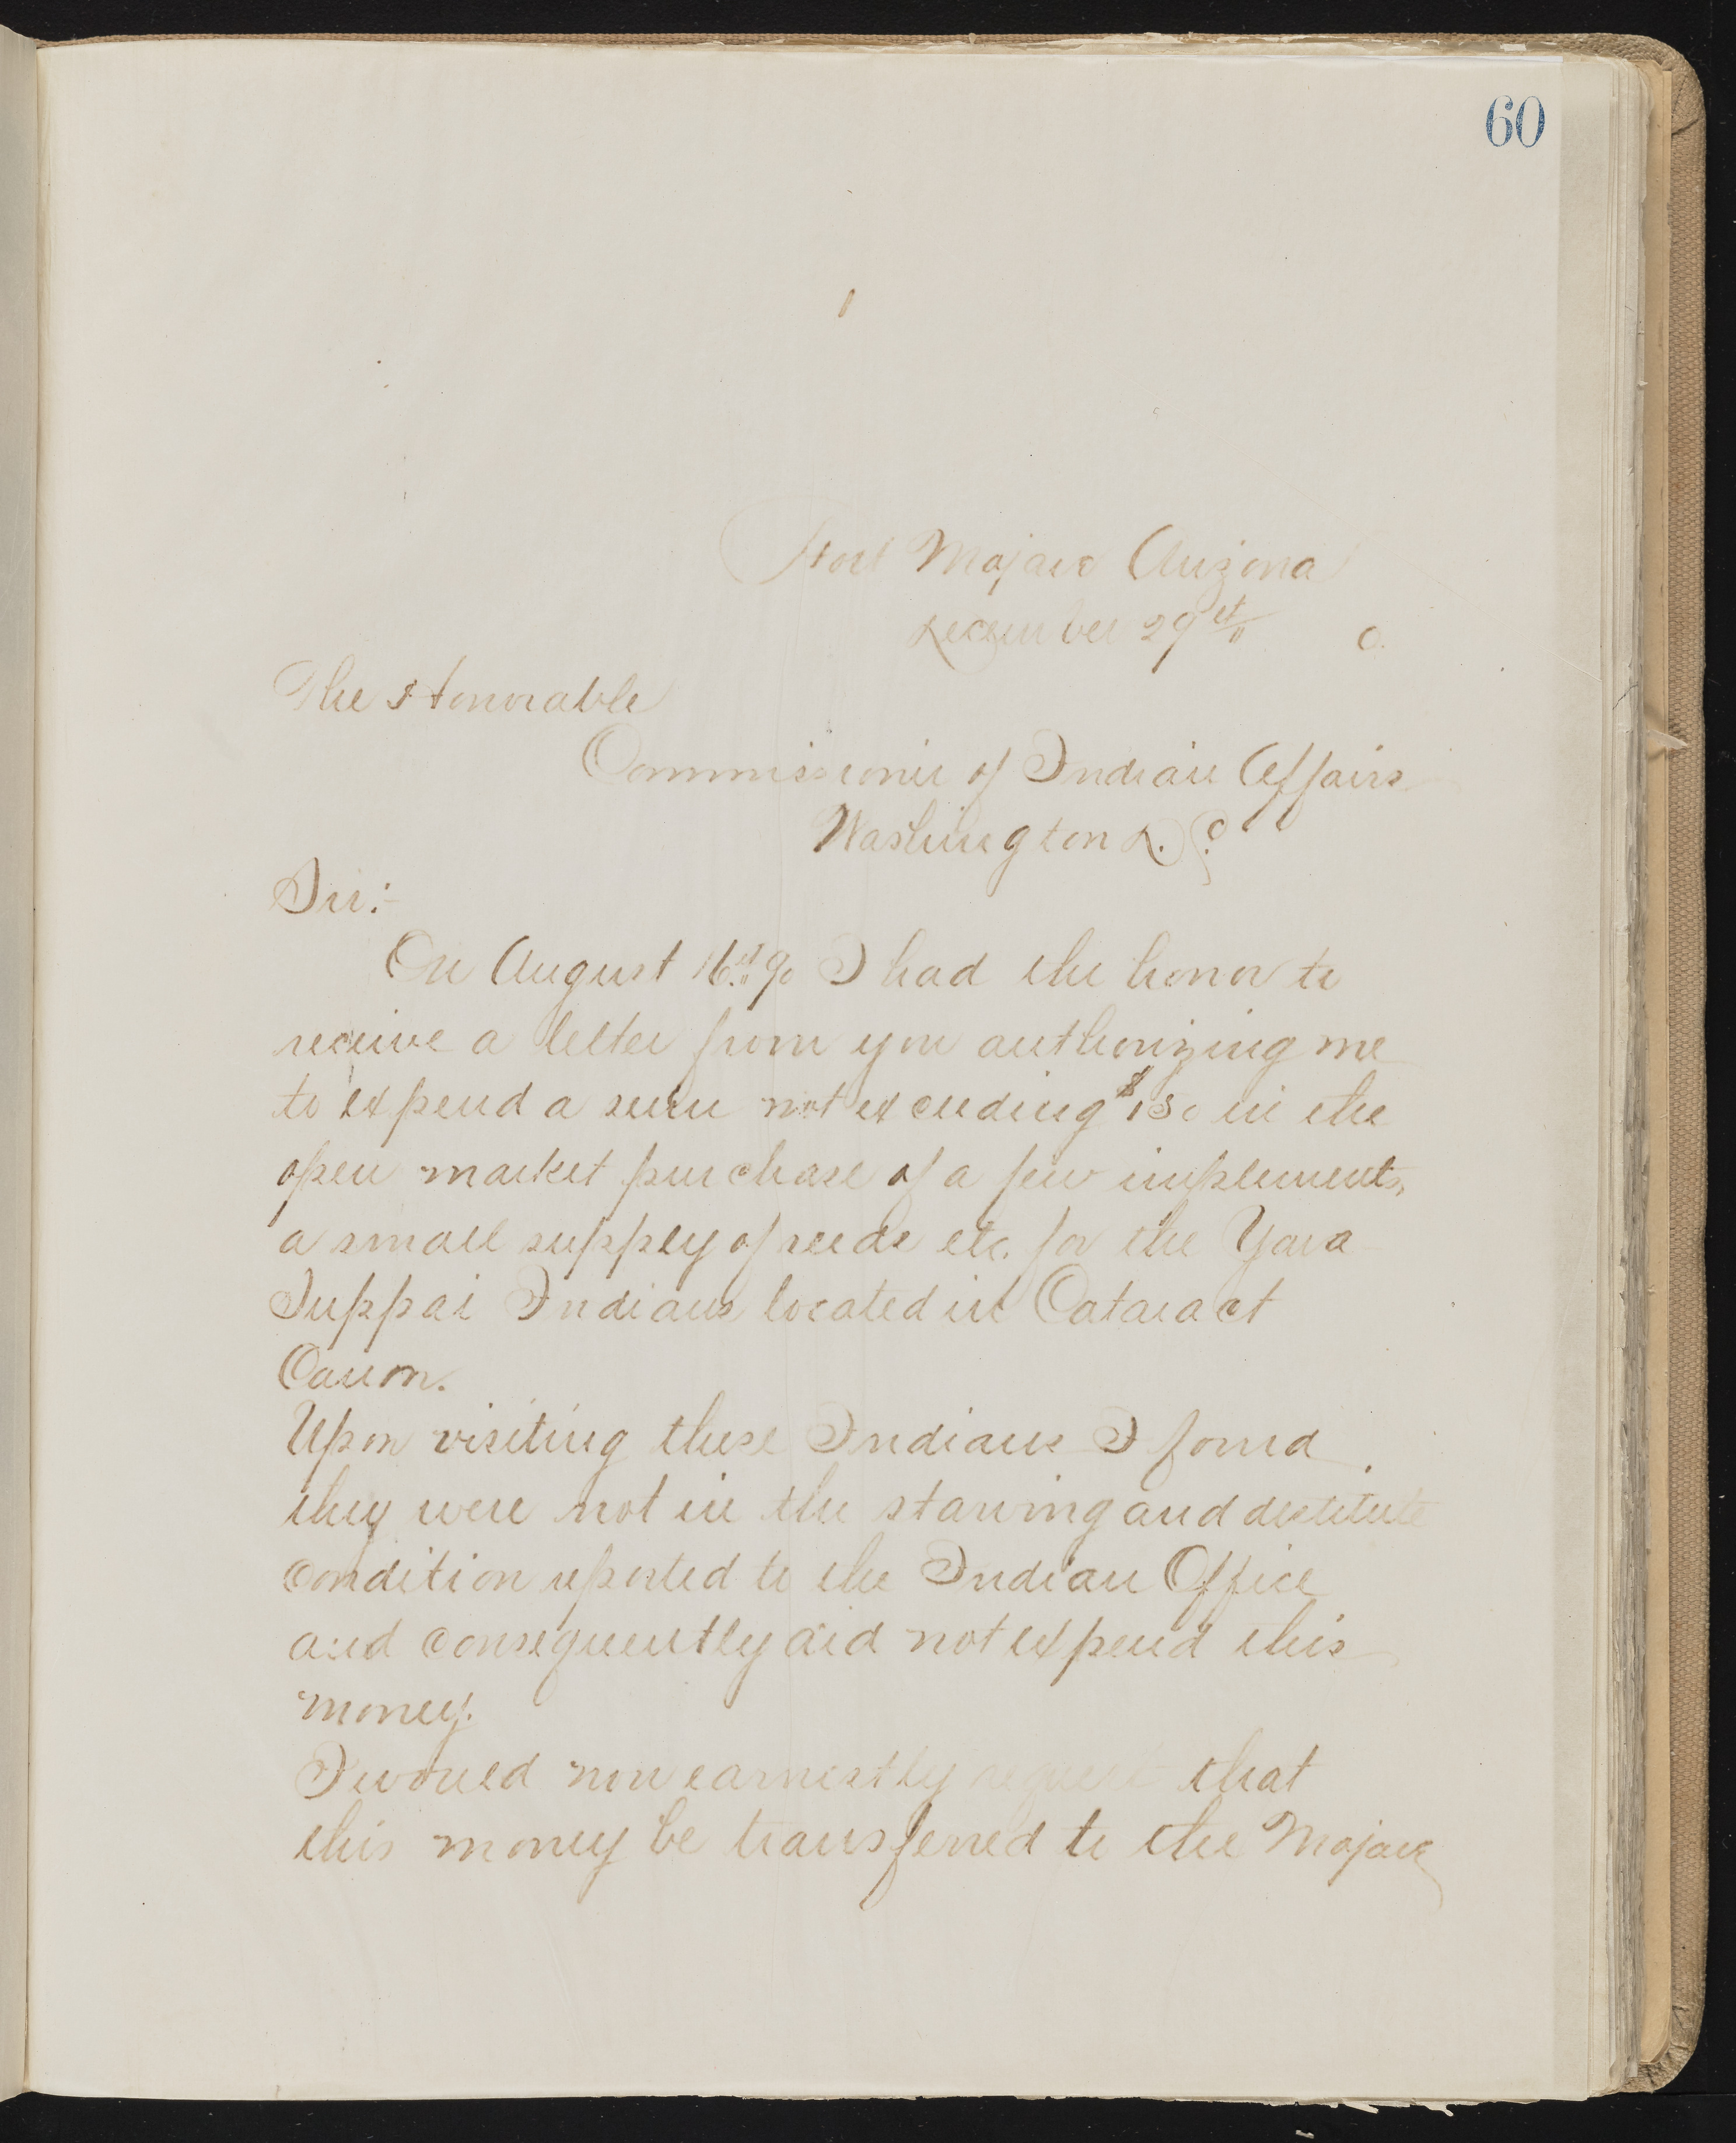 60
Fort Mojave Arizona
December 29th 0.
The Honorable
Commissioner of Indian Affairs
Washington D.C.
Sir:-
On August 16th 90 I had the honor to
receive a letter from you authorizing me
to expend a sum not exceeding $150 in the
open market purchase of a few implements,
a small supply of seeds etc. for the Yava
Suppai Indians located in Cataract
Canon.
Upon visiting these Indians I found
they were not in the starving and destitute
condition reported to the Indian Office
and consequently did not expend this
money.
I would now earnestly request that
this money be transferred to the Mojave